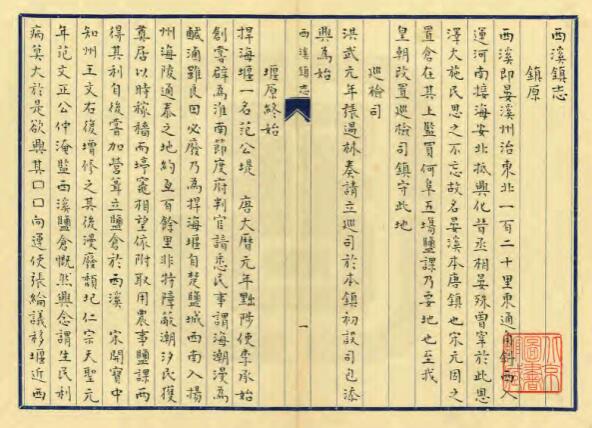 西溪鎮志
鎮原
西溪即晏溪州治東北一百二十里東通角斜西入
運河南接海安北抵興化昔丞相晏殊曾宰於此恩
澤大施民思之不忘故名晏溪本唐鎮也宋元因之
置倉在其上監買何阜五塲鹽課乃要地也至我
皇朝改置巡檢司鎮守此地
巡檢司
洪武元年張過林奏請立巡司於本鎮初設司也添
興為始
西溪鎮志
一
堰原終始
捍海堰一名范公堤 唐大曆元年黜陟使李承始
創寔辟為淮南節度府判官請悉民事謂海潮漫為
鹹滷雖良田必廢乃為捍海堰自楚鹽城西南入揚
州海陵通泰之地約亙百餘里非特障蔽潮汐民獲
奠居以時稼穡而埥竈相望依附取用農事鹽課兩
得其利自後嘗加營葺立鹽倉於西溪 宋開寶中
知州王文右復增修之其後漫廢頹圮仁宗天聖元
年范文正公仲淹監西溪鹽倉慨然興念謂生民利
病莫大於是欲興其口口向運使張綸議移堰近西